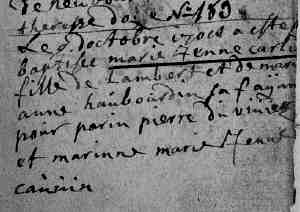 therese doz N° 189
Le 9 doctobre 1708 a este
baptisee marie Jenne carli
fille de Lambert et de mari
anne haubourdin sa f ayan
pour parin pierre du vivier
et marinne marie Jenne